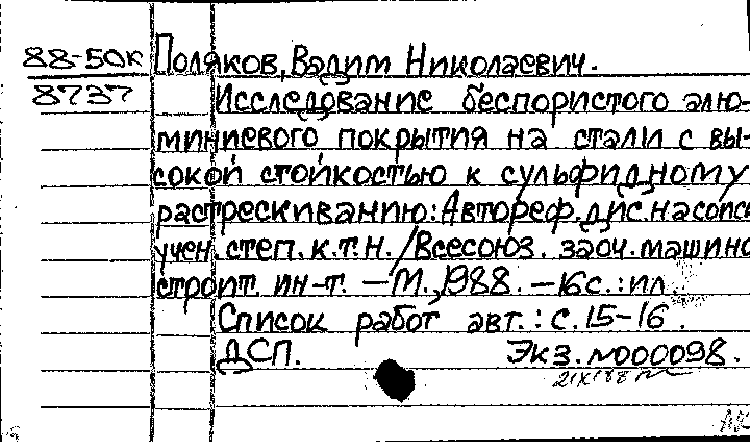 88-50к Поляков, Вадим Николаевич.
8737 Исследование беспористого алю-
миниевого покрытия на стали с вы-
сокой стойкостью к сульфидному
растрескиванию: Автореф. дис. на соиск
учен. степ. к.т.н. / Всесоюз. заоч. машино
строит. ин-т. - М., 1988. - 16 с. : ил.
Список работ авт.: с. 15-16.
ДСП. Экз. №000098.